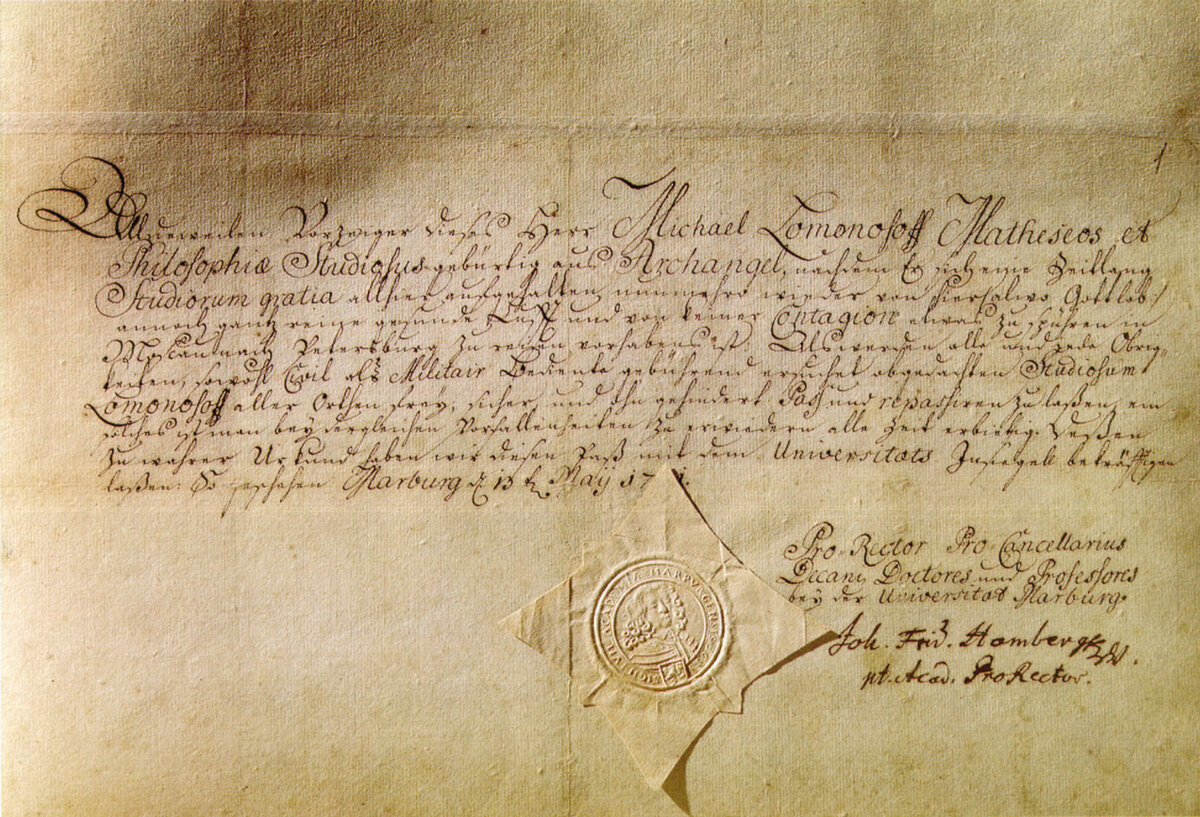 1
Alldeweilen Vorzeiger dieses Herr Michael Lomonosoff Matheseos et
Philosophiæ Studiosus gebürtig aus Archangel, nachdem Er sich eine Zeitlang
Studiorum gratia allhier aufgehalten, nunmehro wieder von hier, alwo Gottlob!
annoch gantz reine gesunde Lufft und von keiner Contagion etwas zu spühren in
Moscau nach Petersburg zu reisen vorhabens ist; Als werden alle und jede Obrig-
keiten, sowohl Civil als Militair Bediente gebührend ersuchet obgedachten Studiosum
Lomonosoff aller Orthen frey, sicher, und ohngehindert Pass und repassiren zu laßen, ein
solches ist man bey dergleichen Vorfallenheiten zu erwiedern alle Zeit erbietig. Deßen
zu wahrer Urkund haben wir diesen Paß mit dem Universitäts Insiegel bekräfftigen
laßen: So geschehen Marburg d 13 May 17
Pro-Rector Pro-Cancellarius
Decani, Doctores und Professores
bey der Universität Marburg.
Joh. Frid. Homberg
pt. Acad. ProRector.